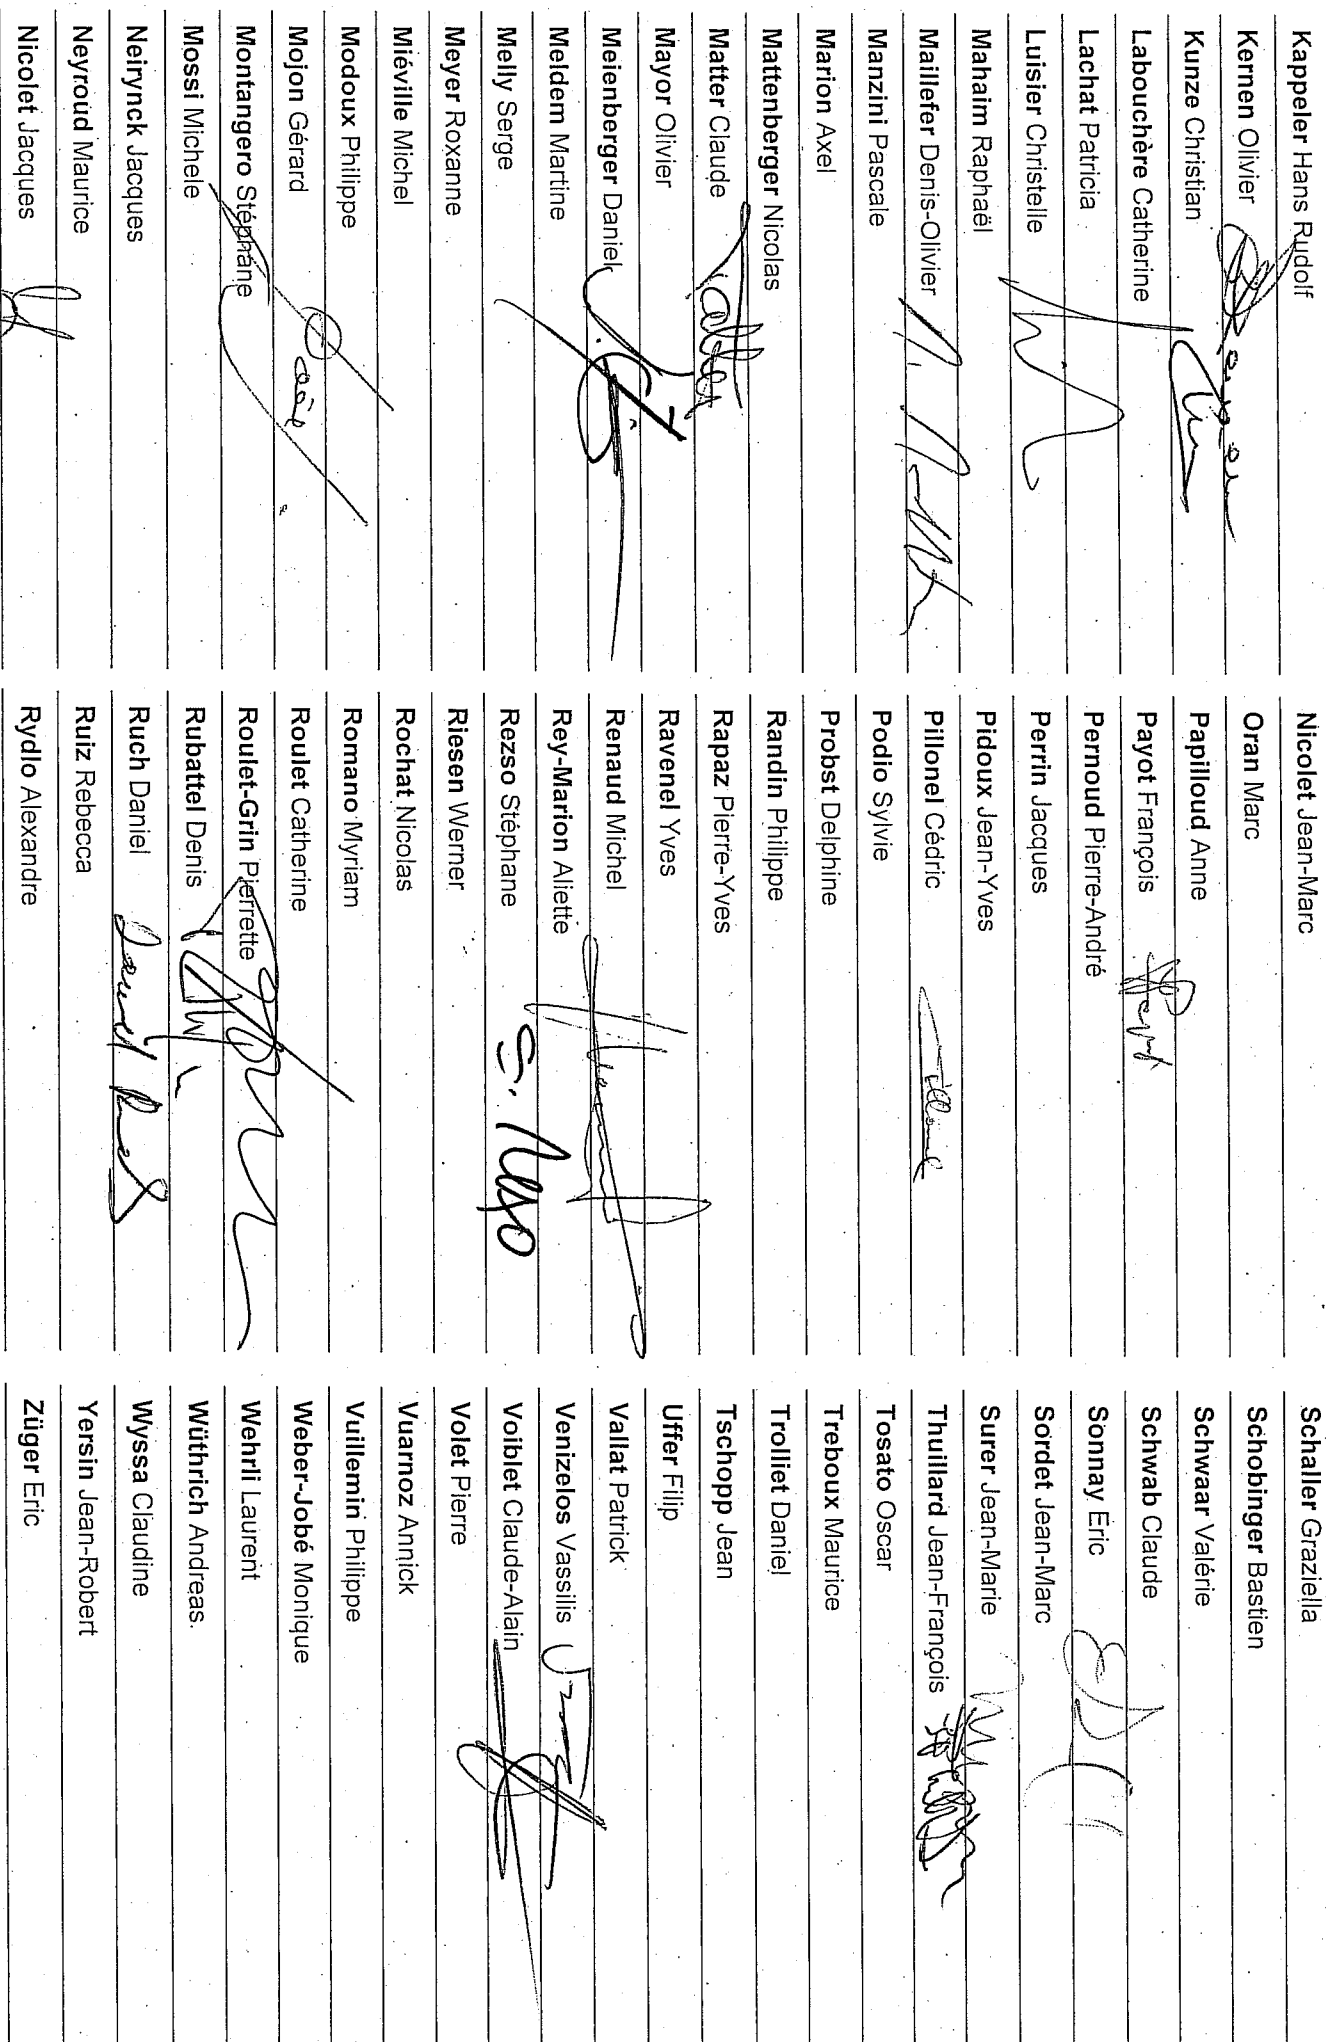 Kappeler Hans Rudolf
Kernen Olivier
Kunze Christian
Labouchère Catherine
Lachat Patricia
Luisier Christelle
Mahaim Raphaël
Maillefer Denis-Olivier
Manzini Pascale
Marion Axel
Mattenberger Nicolas
Matter Claude
Mayor Olivier
Meienberger Daniel
Meldem Martine
Melly Serge
Meyer Roxanne
Miéville Michel
Modoux Philippe
Mojon Gérard
Montangero Stéphane
Mossi Michele
Neirynck Jacques
Neyroud Maurice
Nicolet Jacques
Nicolet Jean-Marc
Oran Marc
Papilloud Anne
Payot François
Pernoud Pierre-André
Perrin Jacques
Pidoux Jean-Yves
Pillonel Cédric
Podio Sylvie
Probst Delphine
Randin Philippe
Rapaz Pierre-Yves
Ravenel Yves
Renaud Michel
Rey-Marion Aliette
Rezso Stéphane
S. Rezso
Riesen Werner
Rochat Nicolas
Romano Myriam
Roulet Catherine
Roulet-Grin Pierrette
Rubattel Denis
Ruch Daniel
Ruiz Rebecca
Rydlo Alexandre
Schaller Graziella
Schobinger Bastien
Schwaar Valérie
Schwab Claude
Sonnay Eric
Sordet Jean-Marc
Surer Jean-Marie
Thuillard Jean-François
Tosato Oscar
Treboux Maurice
Trolliet Daniel
Tschopp Jean
Uffer Filip
Vallat Patrick
Venizelos Vassilis
Voiblet Claude-Alain
Volet Pierre
Vuarnoz Annick
Vuillemin Philippe
Weber-Jobé Monique
Wehrli Laurent
Wüthrich Andreas
Wyssa Claudine
Yersin Jean-Robert
Züger Eric